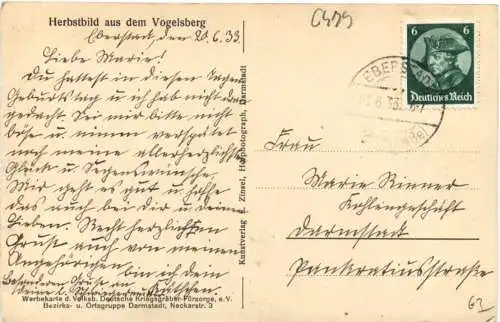 Herbstbild aus dem Vogelsberg
C479
Eberstadt, den 20.6.33
Liebe Marie!
Du hattest in diesen Tagen
Geburtstag u ich hab nicht dran
gedacht. Sei mir bitte nicht
böse u. nimm verspätet
noch meine allerherzlichsten
Glück u Segenswünsche.
Mir geht es gut u hoffe
das auch bei dir u deinen
Lieben. Recht herzlichsten
Gruß auch von meinen
Angehörigen bin ich dein
Besonderen Gruß an
Kätchen.
Werbekarte d. Volksb. Deutsche Kriegsgräber-Fürsorge, e.V.
Bezirks- u. Ortsgruppe Darmstadt, Neckarstr. 3
Kunstverlag E. Zinsel, Hofphotograph, Darmstadt
6 6
Deutsches Reich
EBERSTADT
Frau
Marie Renner
Kohlengeschäft
Darmstadt
Pankratiusstraße
62